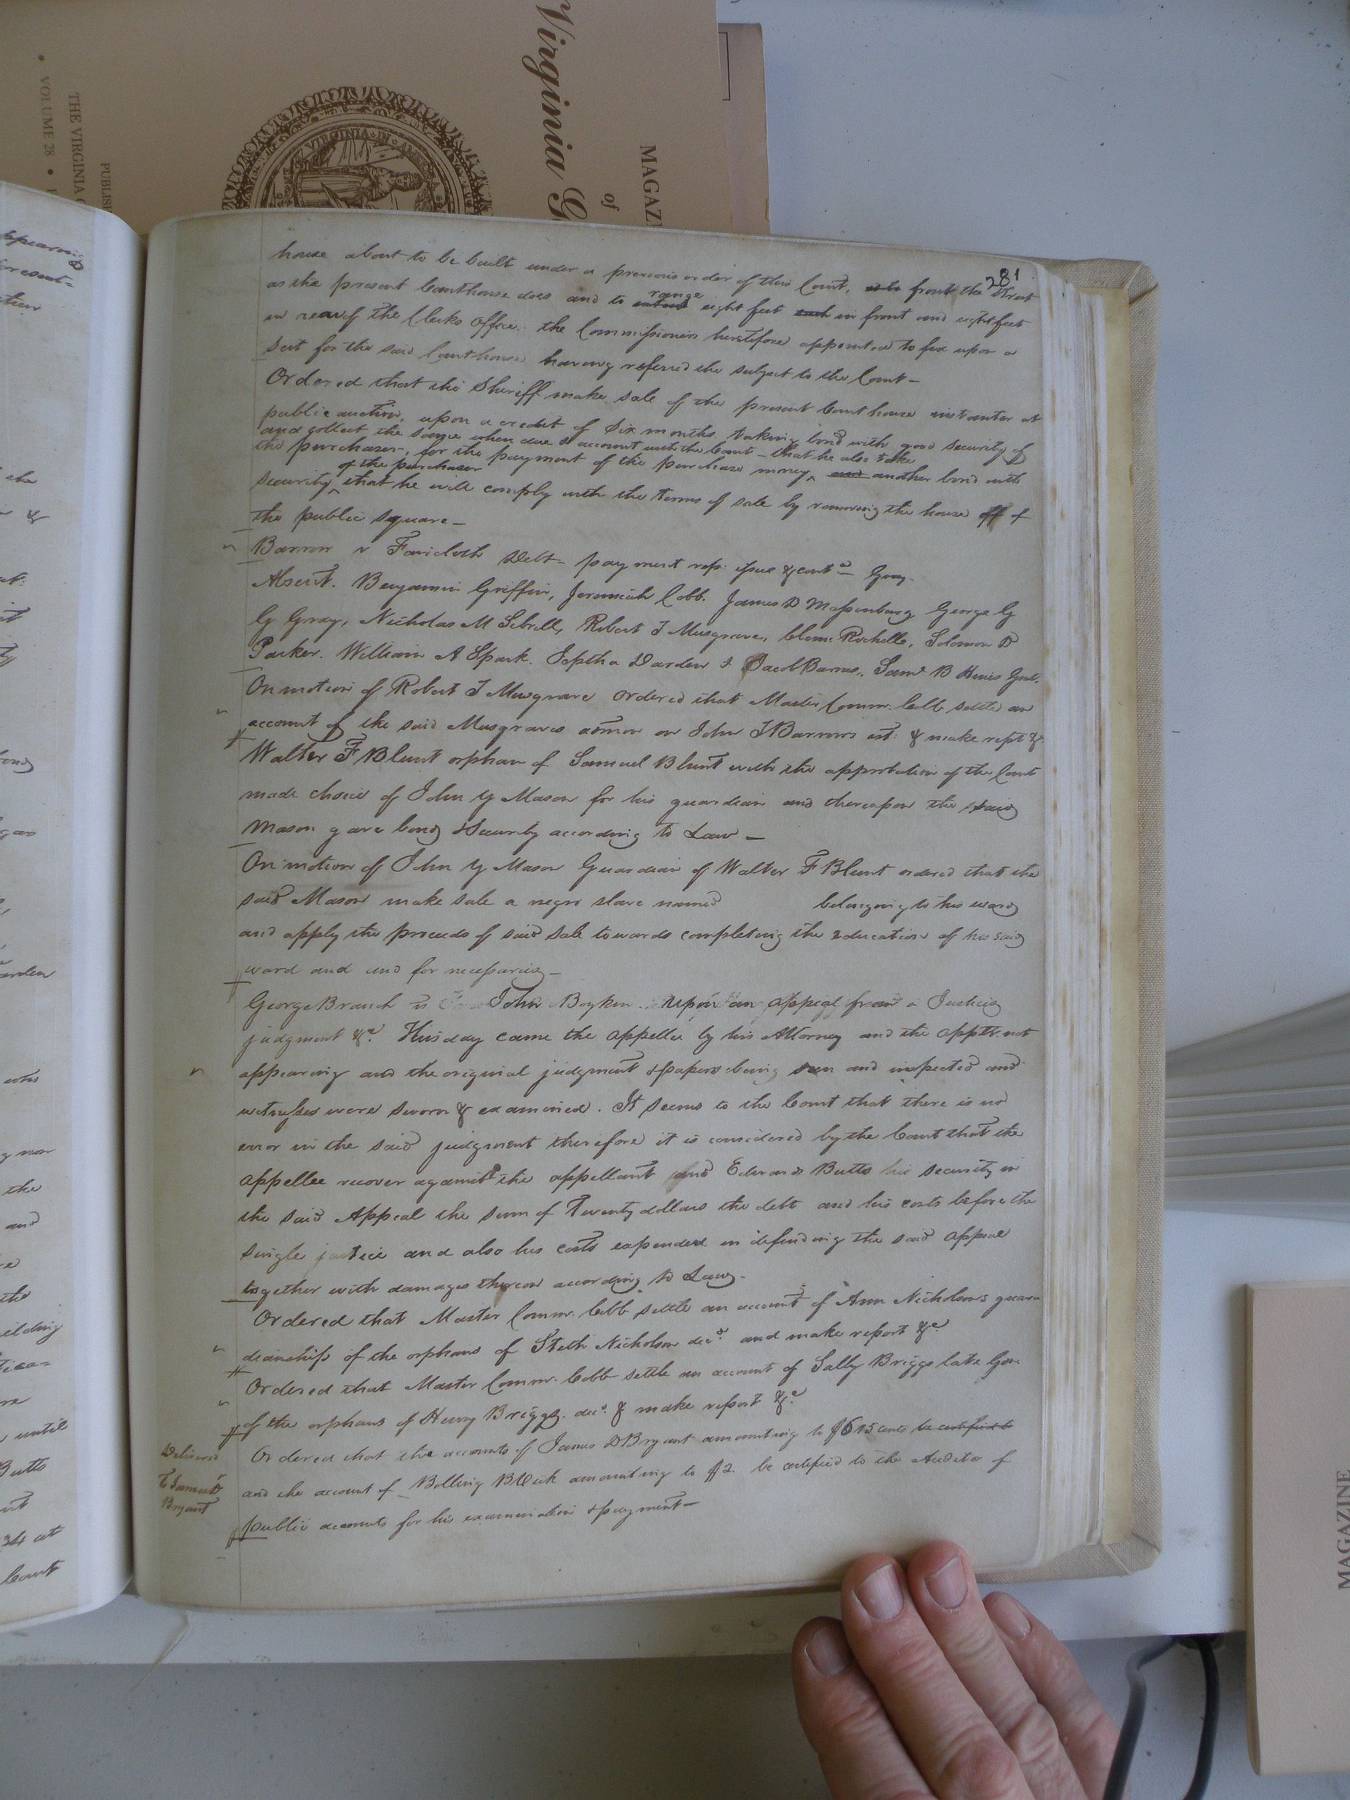 Virginia
MAGAZI
of
THE VIRGINIA
VOLUME 28
PUBLIS
VIRGINIA
281
house about to be built under a previous order of this Court, is to front the Street
as the present Courthouse does and to range eight feet each in front and eight feet
in rear of the Clerks office. the Commissioners heretofore appointed to fix upon a
seit for the said Courthouse having referred the subject to the Court—
Ordered that the Sheriff make sale of the present Courthouse instanter at
public auction, upon a credit of six months, taking bond with good security of
and collect the same when due & account with the Court — that he also take
the purchaser, for the payment of the purchase money, and another bond with
of the purchaser
security that he will comply with the terms of sale by removing the house off of
the public square—
Barrow v Faircloth Debt payment rep: issue & contd Gray.
Absent. Benjamin Griffin, Jeremiah Cobb. James D Massenburg George G
G Gray, Nicholas M Sebrell, Robert T Musgrave, Clem: Rochelle, Solomon D
Parker. William A Spark. Jeptha Darden & Jacob Barnes, Saml B Hines Gent.
On motion of Robert T Musgrave ordered that Master Commr. Cobb settle an
account of the said Musgraves admon on John T Barrows est: & make rept &c
Walter F Blunt orphan of Samuel Blunt with the approbation of the Court
made choice of John Y Mason for his guardian and thereupon the said
Mason gave bond & Security according to Law—
On motion of John Y Mason Guardian of Walter F Blunt ordered that the
said Mason make sale a negro slave named belonging to his ward
and apply the proceeds of said sale towards completing the education of his said
ward and and for necessaries—
George Branch vs John Boykin. Upon an appeal from a Justices
judgment &c. This day came the appellee by his Attorney and the applt. not
appearing and the original judgment & papers being seen and inspected and
witnesses were sworn & examined. It seems to the Court that there is no
error in the said judgment therefore it is considered by the Court that the
appellee recover against the appellant and Edward Butts his security in
the said Appeal the sum of Twenty dollars the debt and his costs before the
single justice and also his costs expended in defending the said appeal
together with damages thereon according to Law.
Ordered that Master Commr. Cobb settle an account of Ann Nicholson's guar
dianship of the orphans of Steth Nicholson decd. and make report &c
Ordered that Master Commr. Cobb settle an account of Sally Briggs late Gdn.
of the orphans of Henry Briggs. decd. & make report &c
Ordered that the accounts of James D Bryant amounting to $6 15 cents be certified to
and the account of Bolling B amounting to $2 be certified to the Auditor of
public accounts for his examination & payment—
Delivered
To Samuel
Bryant
MAGAZINE